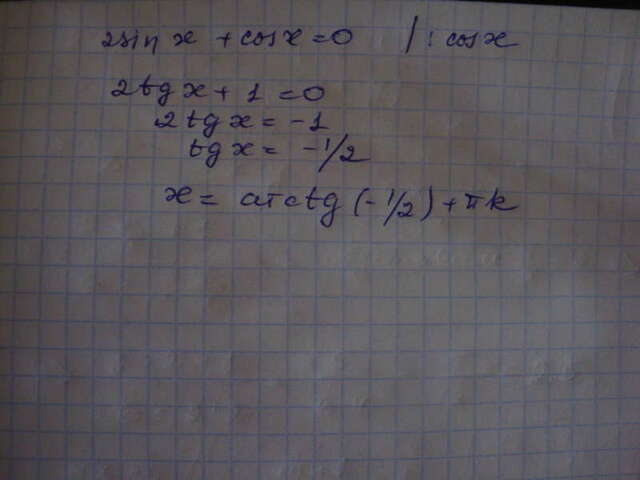 2sin x + cosx = 0 | : cosx
2tg x + 1 = 0
2tg x = -1
tg x = -1/2
x = arctg (-1/2) + πk